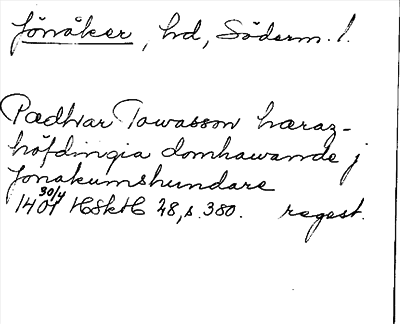 Jönåker, hd, Söderm. l.
Pædhar Towasson hæraz-
höfdingia domhawande j
Jonakumshundare
30/4
1401 HSkH 28, s. 380. regest.